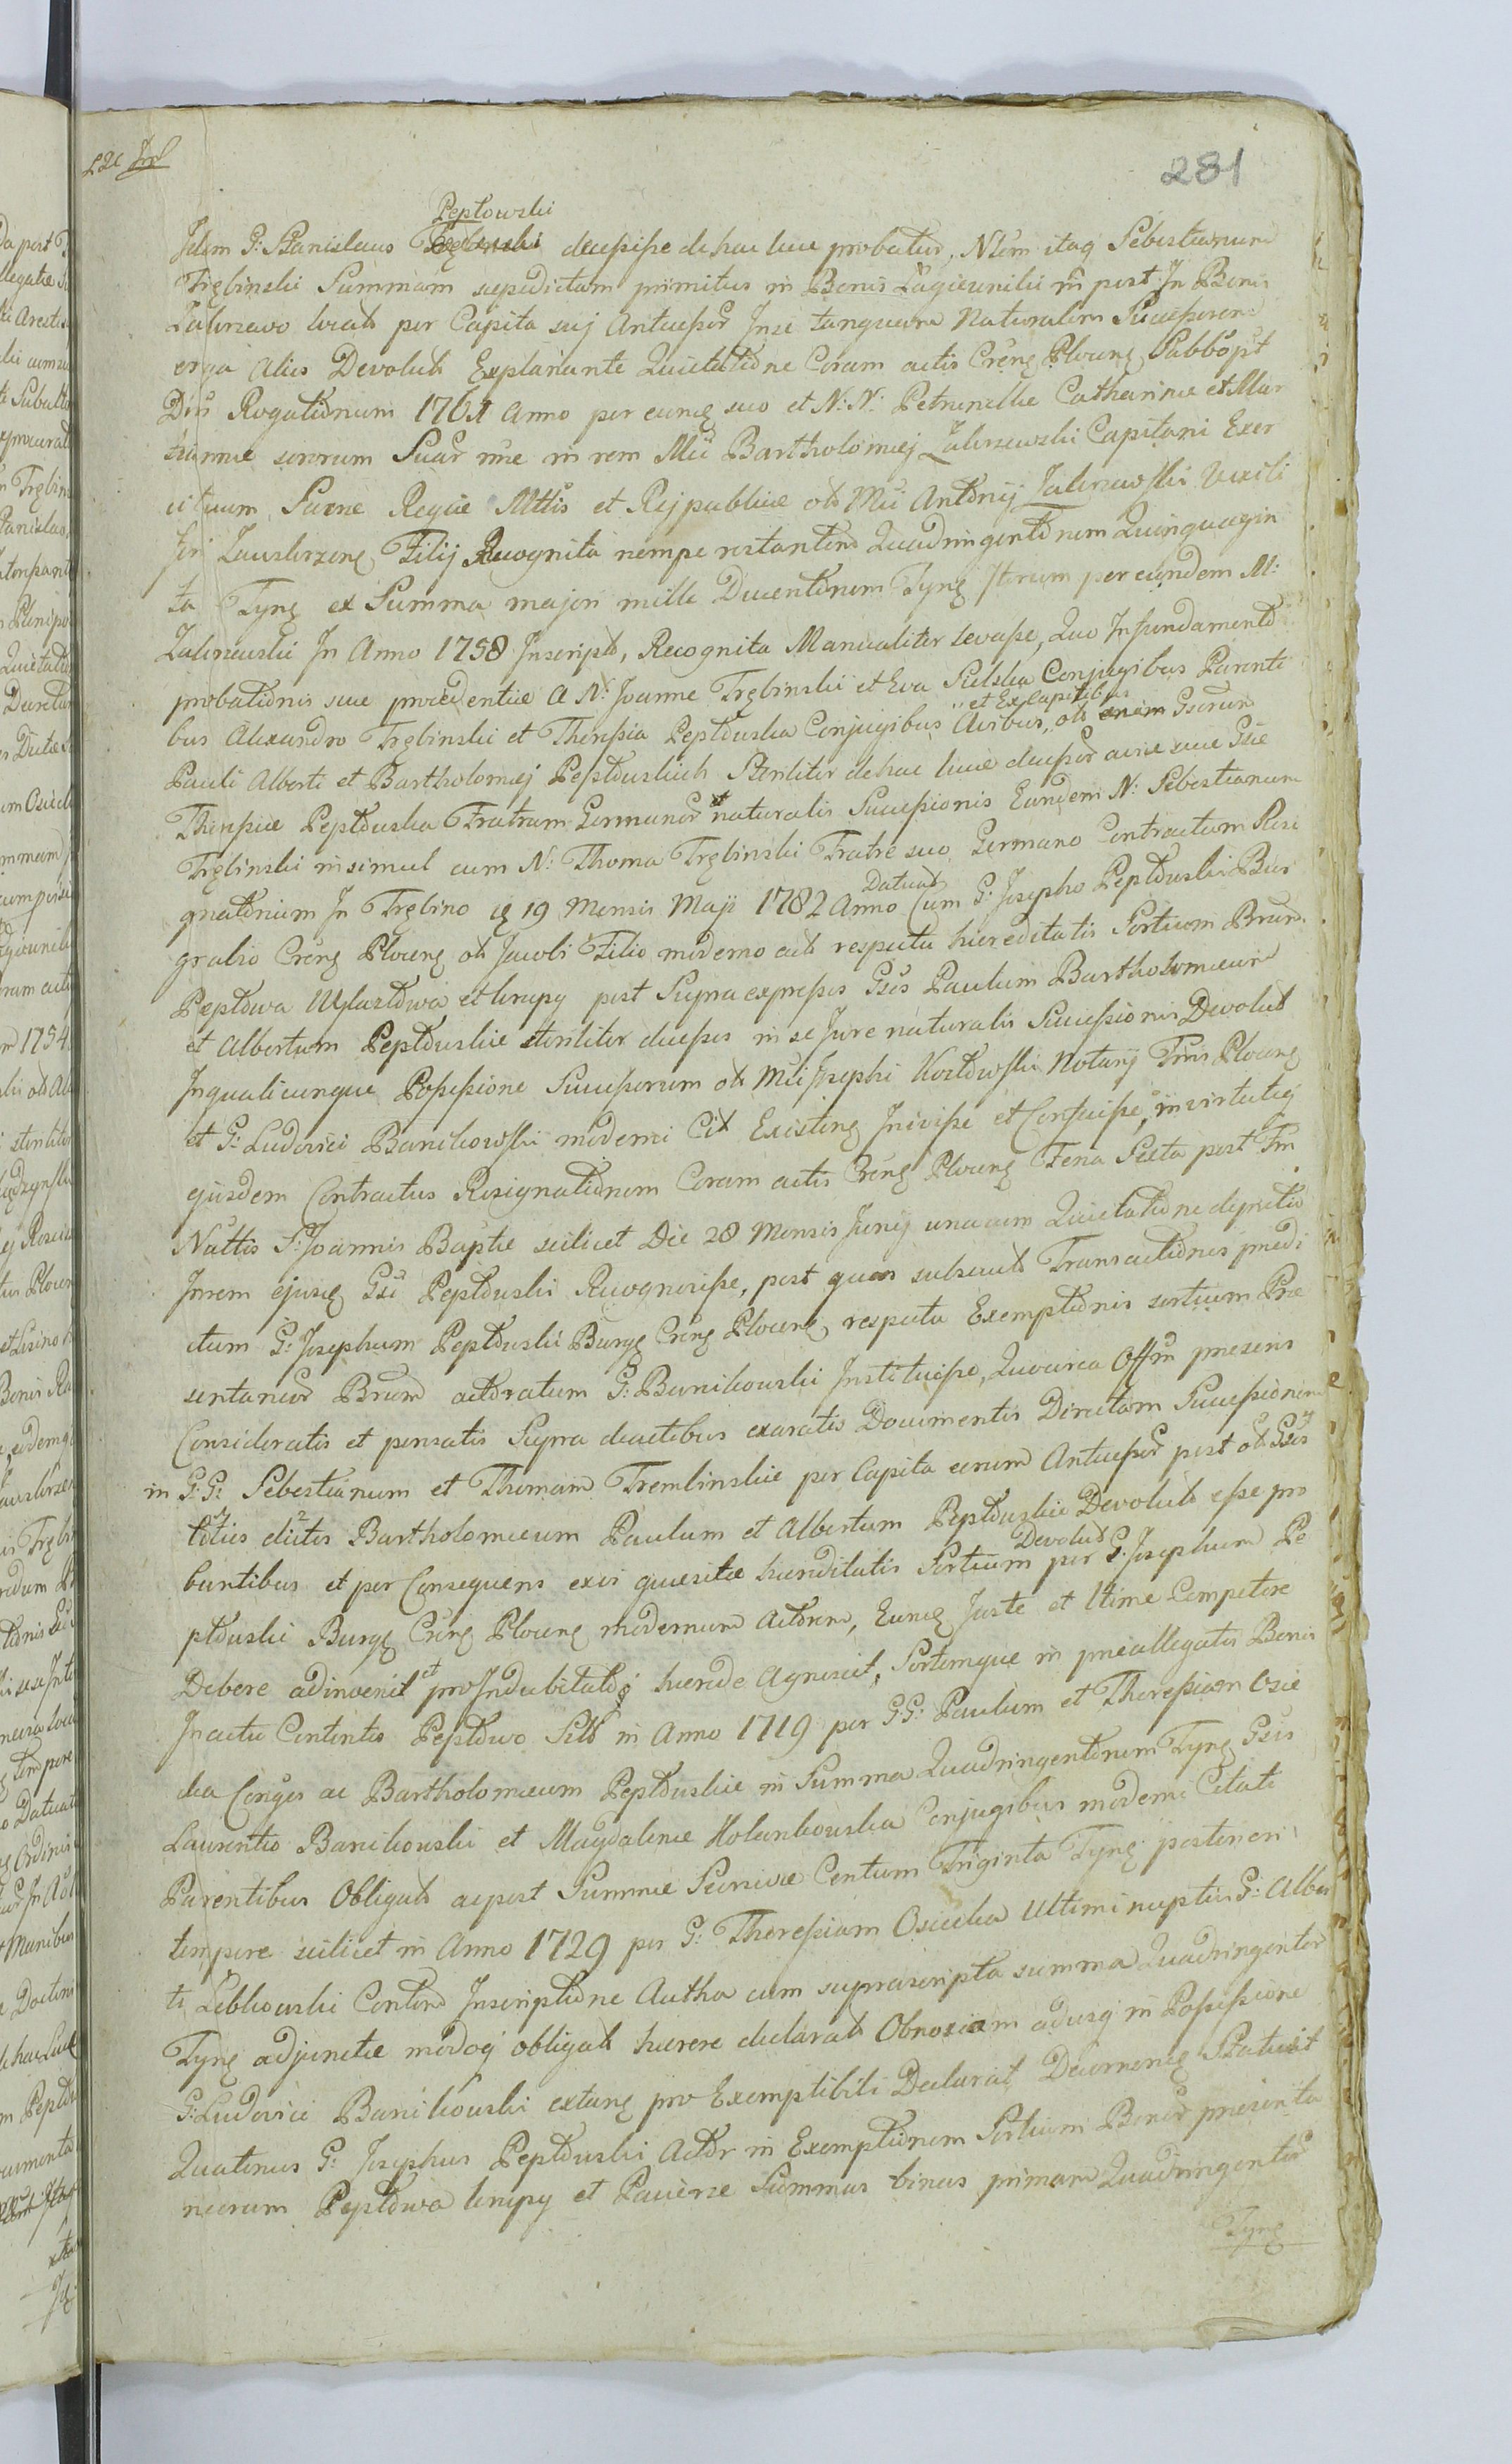 281
Peptowski
Idem G: Stanislaus decessisse de hac luce probatur, Ntum itaq Sebestianum
Trębinski Summam sepedictam primitus in Bonis Łagiewniki in post In Bonis
Zakrzewo locat per Capita suj Antecessor Inse tanquam Naturalem Successorem
erga alios Devolut Explanante Quietatione Coram actis Creng Płoceng Sabbo pst
Dies Rogationum 1761 Anno per eumq suo et N: N: Petrunelle Catharinae et Mar
ianne sororum Suar nne in rem Mci Bartholomej Zakrzewski Capitani Exer
cituum Sacrae Regiae Mttis et Rejpublice ols Mci Antonij Zakrzewski Vexili
feri Zawskrzeng Filij Recognita nempe restantem Quadringentorum Quinquagin
ta Tyng ex Summa majori mille Ducentorum Tyng Iterum per eundem M:
Zakrzewski In Anno 1758 Inscript, Recognita Manualiter levasse, Quo In fundamento
probationis suae procedentiae a N: Joanne Trębinskii et Eva Sulska Conjugibus Parenti
bus Alexandro Trębinski et Theressia Peptowska Conjugibus Avibus, et Ex Capitibus ols Gsorum
Pauli Alberti et Bartholomej Peptowskich Steriliter de hac luce decessor aviae suae Gsae
Theressiae Peptowska Fratrum Germanor naturalis Successionis Eundem N: Sebestianum
Trębinski insimul cum N: Thoma Trębinski Fratre suo Germano Contractum Resi
gnatorium In Trębino 19 Mensis Maji 1782 Anno Datuat Cum G: Josepho Peptowski Bur
grabio Creng Płoceng ols Jacobi Filio moderno act respectu haereditatis Sortium Bnrum
Peptowa Wglaztowa et krupy post Supra expressos Gsos Paulum Bartholomeum
et Albertum Peptowskie steriliter decessos in se Jure naturalis Successionis Devolut
In qualicunque Possessione Successorum ols Mci Josephi Kozłowski Notarij Tris Płoceng
et G: Ludovici Banikowski moderni Cit Existeng Inivisse et Confecisse, in virtuteq
ejusdem Contractus Resignationem Coram actis Creng Płoceng Feria Sexta post Fm
Nattis S: Joannis Baptae scilicet Die 28 Mensis Junij una cum Quietatione de pretio
In rem ejusq Gsi Peptowski Recognovisse, post quam subsecut Transactionis praedi
ctum G: Josephum Peptowski Burg Creng Płoceng respectu Exemptionis sortium Prae
sentaneor Bnrum actoratum G: Banikowski Instituisse, Quocirca Offm praesens
Consideratis et pensatis Supra deductibus exaratis Documentis Directam Successionem
in G: G: Sebestianum et Thomam Tremlinskie per Capita eorum Antecessor post ols Gsos
toties dictos Bartholomeum Paulum et Albertum Peptowskie Devolut esse pro
bantibus et per Consequens exis quaesitae haereditatis Sortium Devolut per G. Josephum Pe
ptowski Burg Creng Płoceng modernum Actorem, Eumq Juste et ltime Competere
Debere adinvenit et pro Indubitato haerede Agnoscit, Sortemque in praeallegatis Bonis
In actu Contentis Peptowo Sitt in Anno 1719 per G:G: Paulum et Theressiam Osie
cka Conges ac Bartholomeum Peptowskie in Summa Quadringentorum Tyng Gsis
Laurentio Banikowski et Magdalenae Kolankowska Conjugibus moderni Citati
Parentibus Obligat ac post Summae Censivae Centum Triginta Tyng posteriori
tempore scilicet in Anno 1729 per G: Theressiam Osiecka Ultimi nuptus G: Alber
ti Lebkowski Contore Inscriptione Autha cum suprascripta summa Quadringentor
Tyng adjunctae modoq obligat haerere declarat Obnoxiam adusq in Possessione
G: Ludovici Banikowski extanq pro Exemptibili Declarat Decernenq Statuit
Quatenus G: Josephus Peptowski Actor in Exemptionem Sortium Bonor praesenta
neorum Peptowa krupy et Pauerze Summas binas primam Quadringentor
Tyng